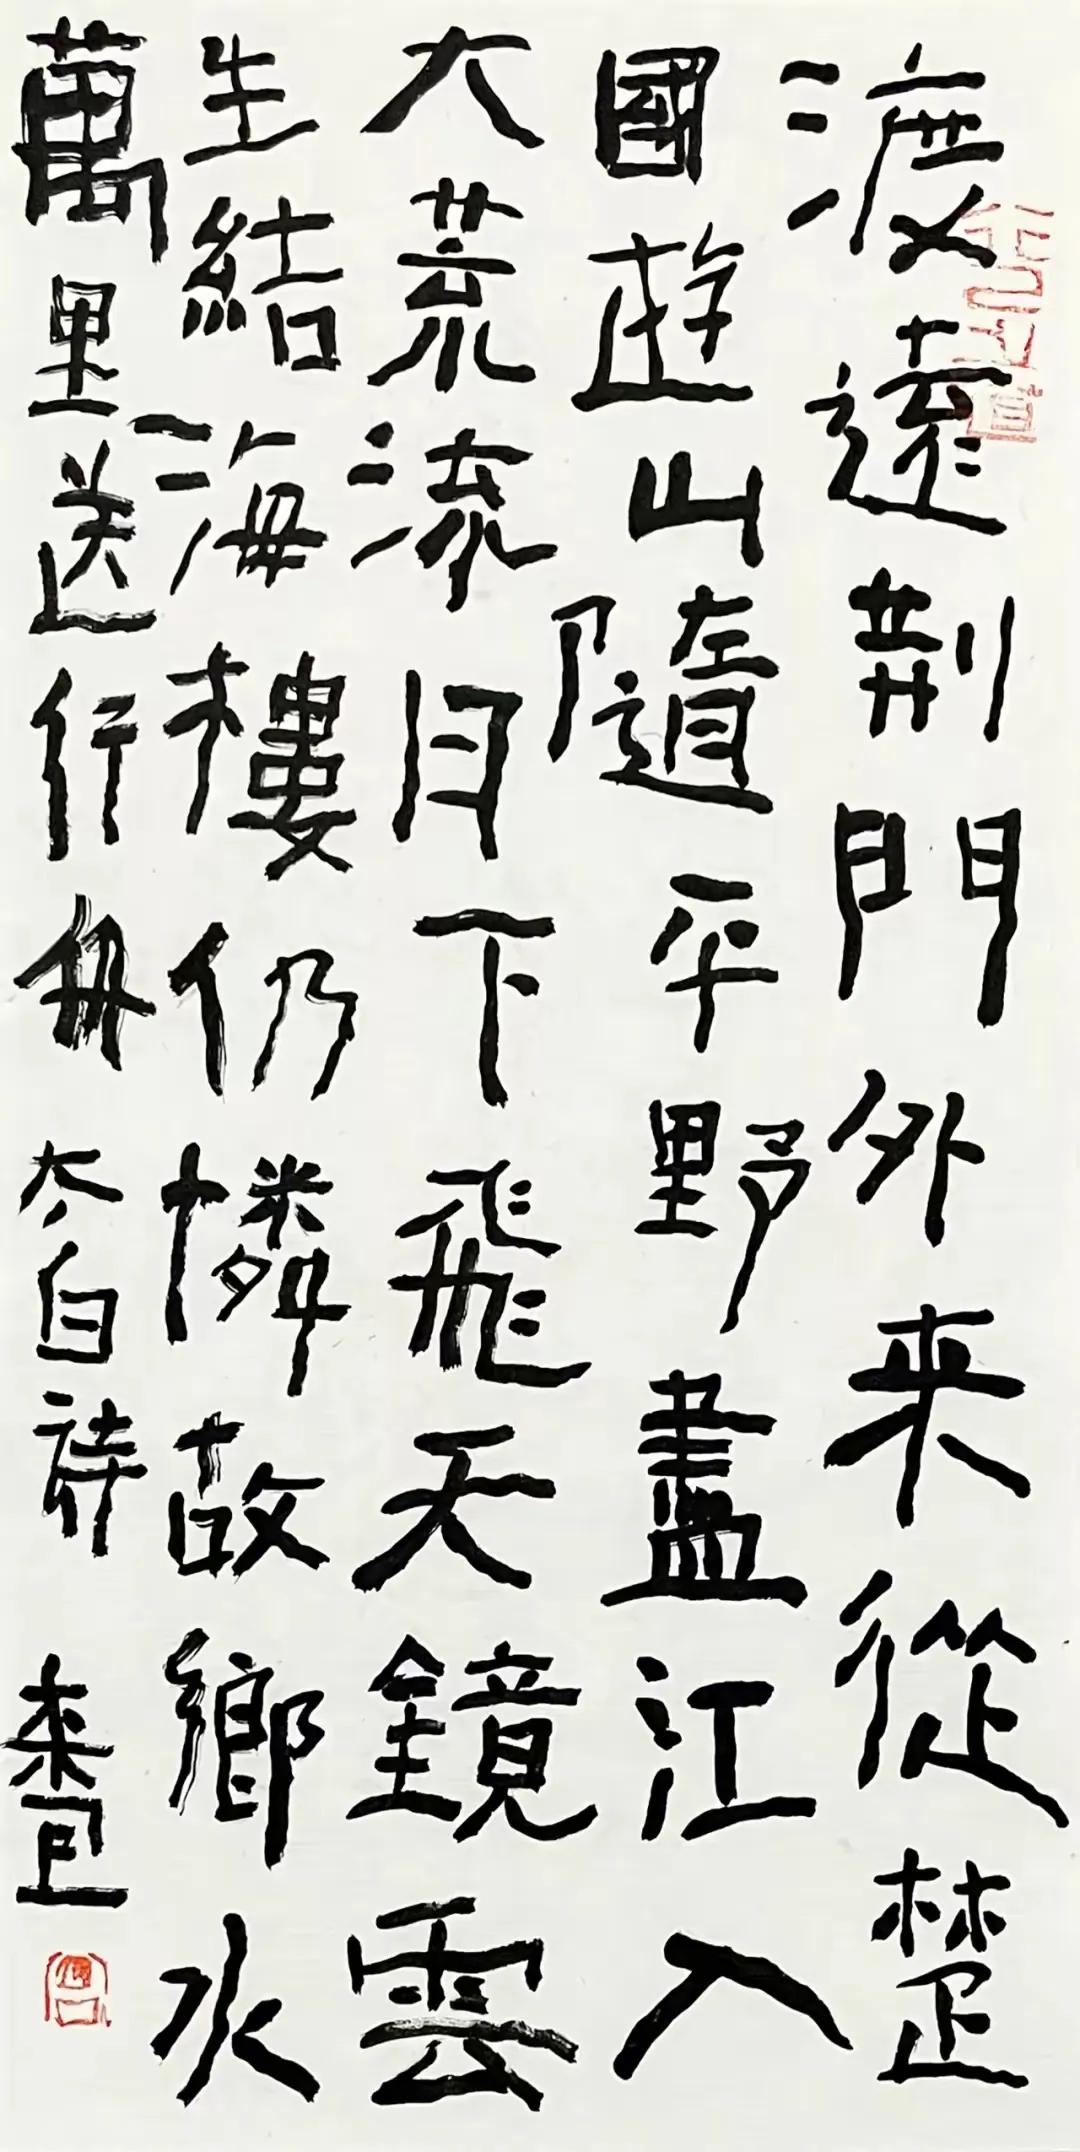 渡遠荆門外来從楚
國遊山隨平野盡江入
大荒流月下飛天鏡雲
生結海樓仍憐故鄉水
萬里送行舟 太白詩